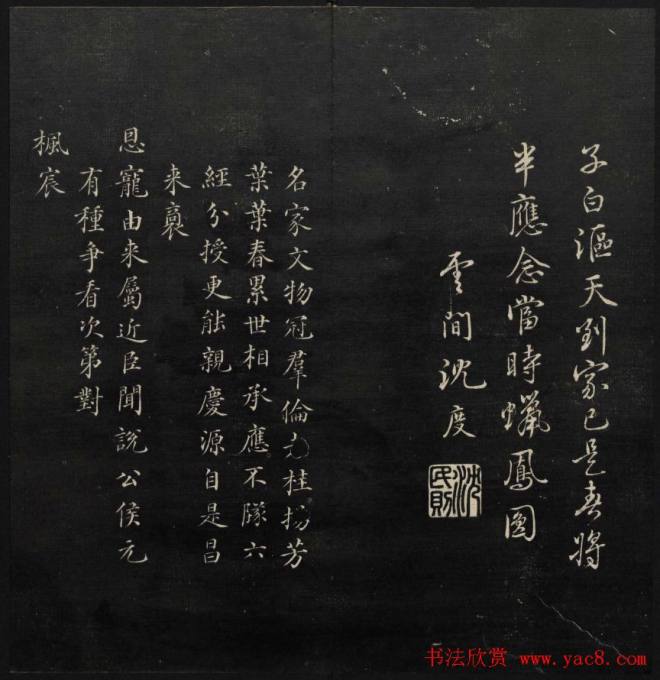 子白漚天到家已是春將
半應念當時蠟鳳圖
雲間沈度
沈民則
名家文物冠羣倫桂揚芳
葉葉春累世相承應不隊六
經分授更能親慶源自是昌
来裔
恩寵由来屬近臣聞說公侯元
有種爭看次第對
楓宸
书法欣赏 www.yac8.com